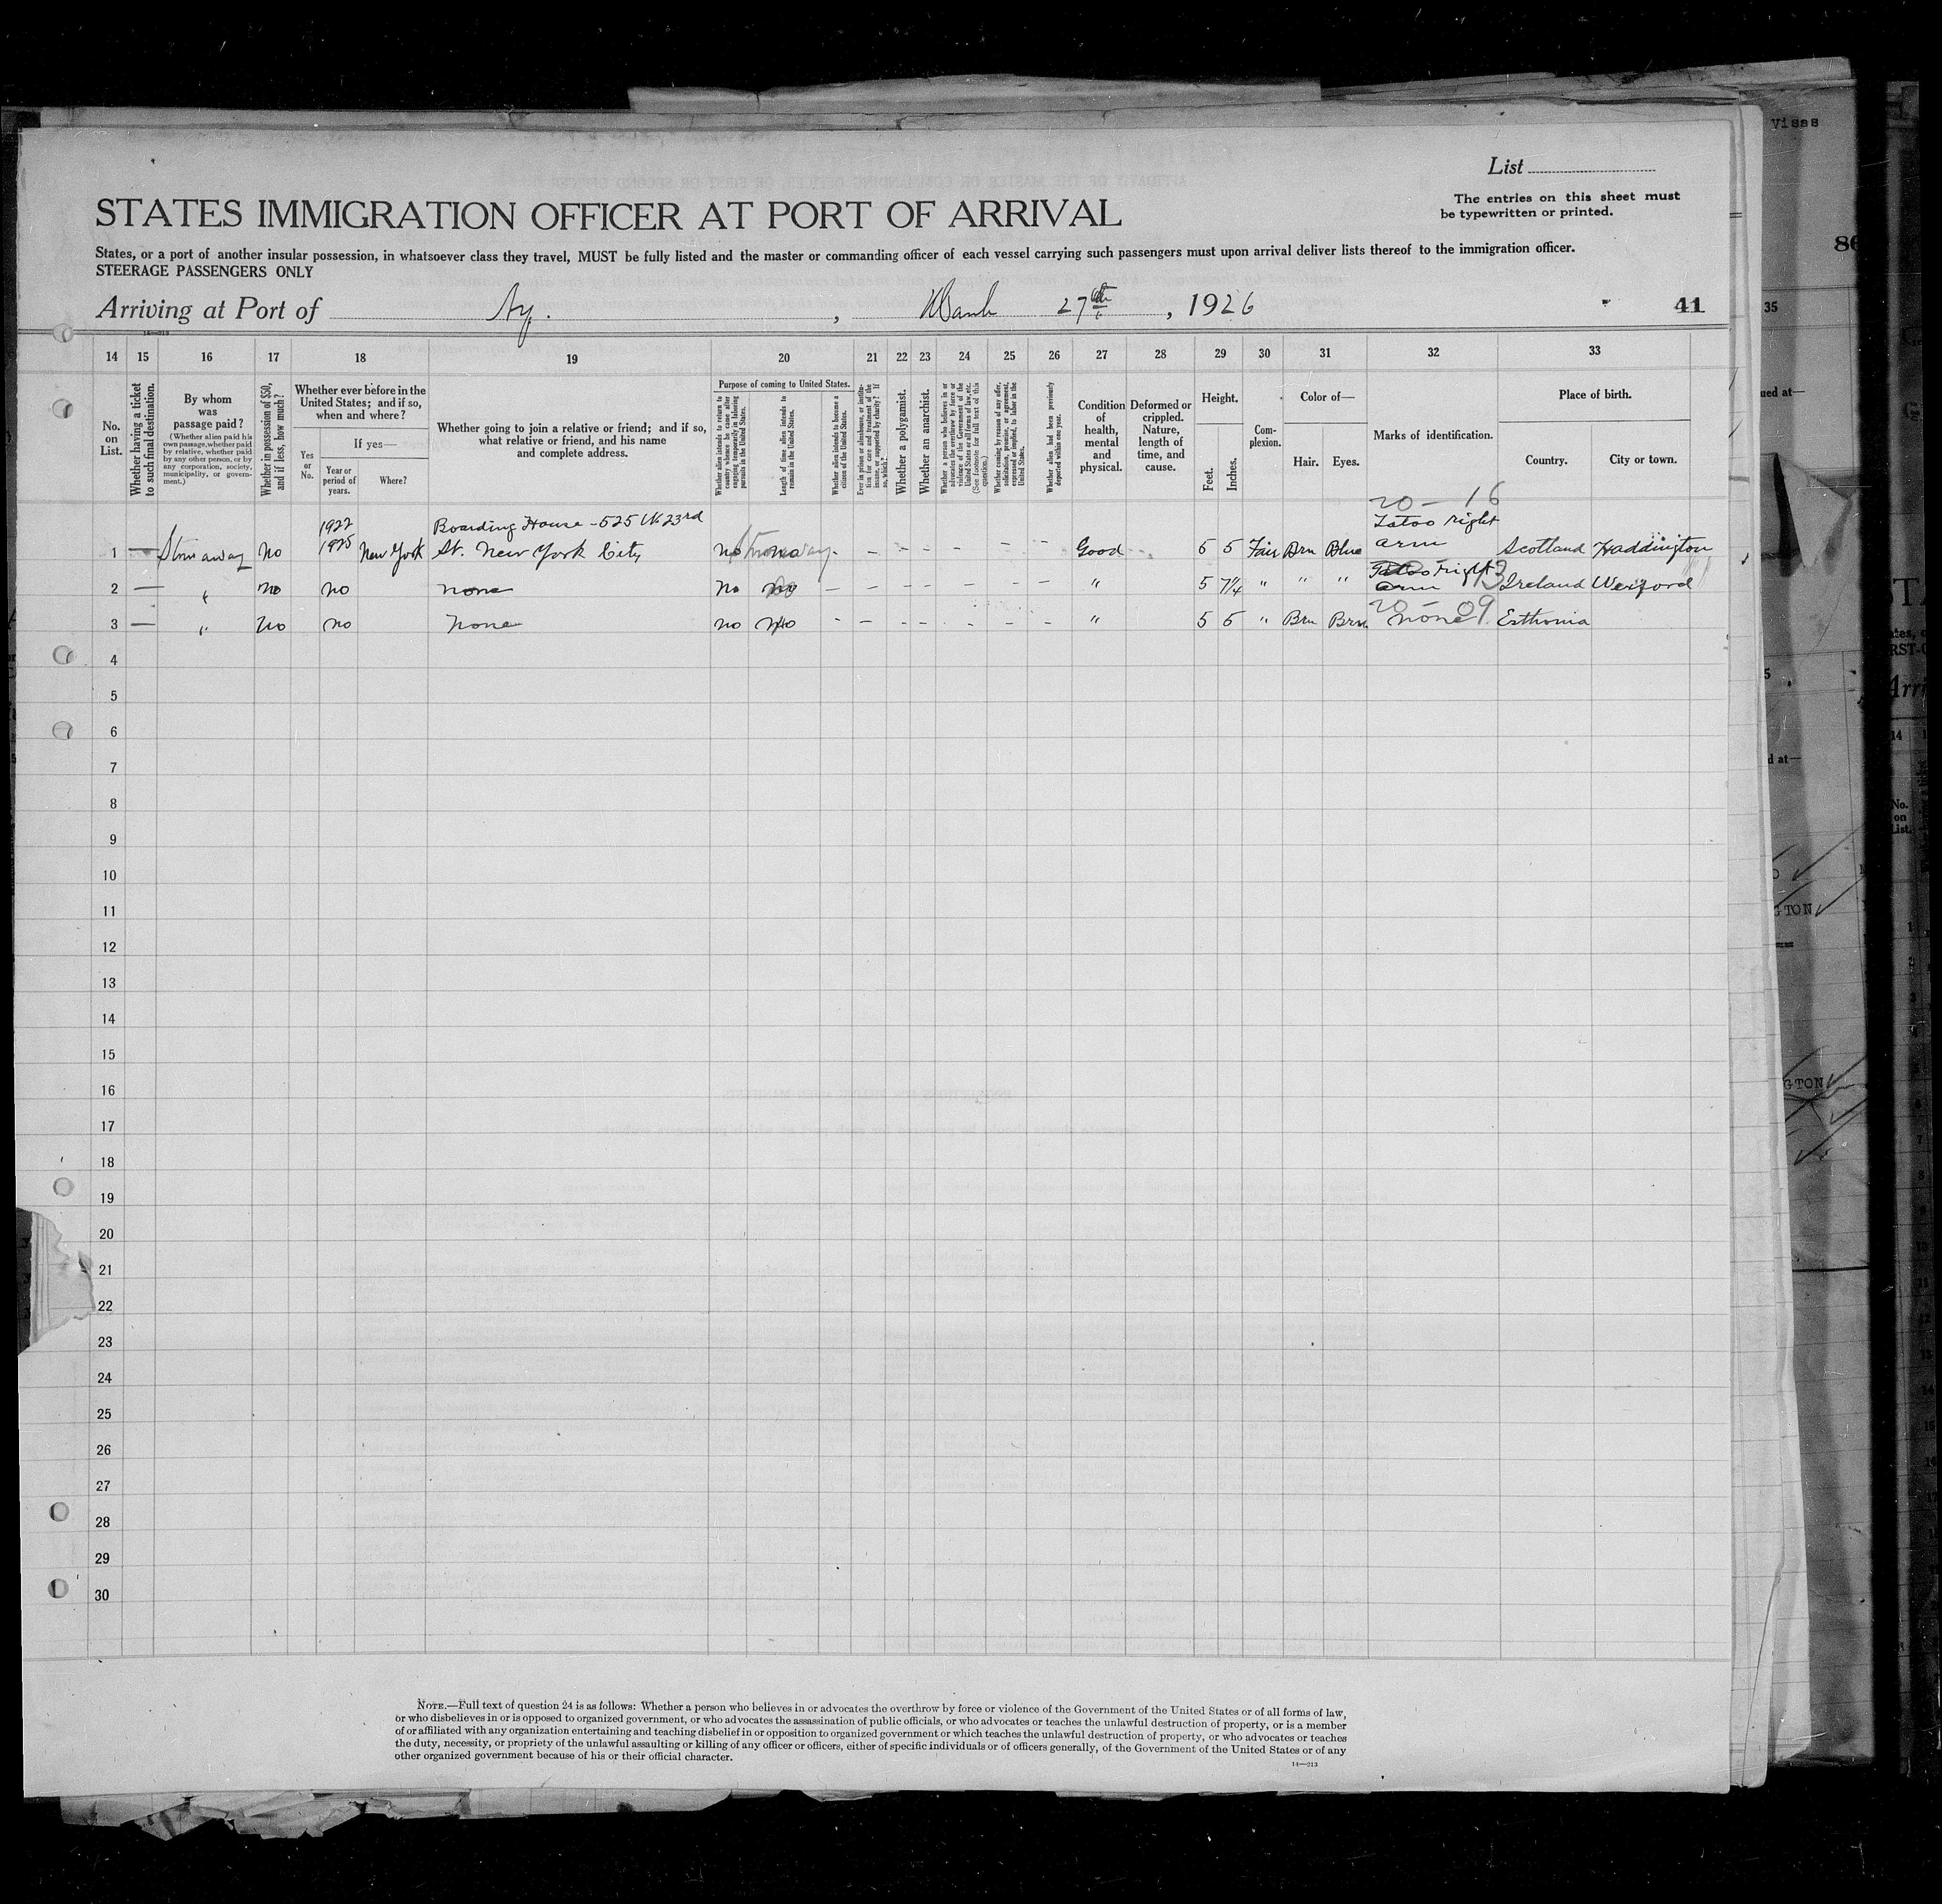 List
The entries on this sheet must
be typewritten or printed.
STATES IMMIGRATION OFFICER AT PORT OF ARRIVAL
States, or a port of another insular possession, in whatsoever class they travel, MUST be fully listed and the master or commanding officer of each vessel carrying such passengers must upon arrival deliver lists thereof to the immigration officer.
STEERAGE PASSENGERS ONLY
Arriving at Port of Ny. , March 27th , 1926 41
14—213
14 15 16 17 18 19 20 21 22 23 24 25 26 27 28 29 30 31 32 33
No.
on
List.
Whether having a ticket
to such final destination.
By whom
was
passage paid?
(Whether alien paid his
own passage, whether paid
by relative, whether paid
by any other person, or by
any corporation, society,
municipality, or govern-
ment.)
Whether in possession of $50,
and if less, how much?
Whether ever before in the
United States; and if so,
when and where?
Yes
or
No.
If yes—
Year or
period of
years.
Where?
Whether going to join a relative or friend; and if so,
what relative or friend, and his name
and complete address.
Purpose of coming to United States.
Whether alien intends to return to
country whence he came after
engaging temporarily in laboring
pursuits in the United States.
Length of time alien intends to
remain in the United States.
Whether alien intends to become a
citizen of the United States.
Ever in prison or almshouse, or institu-
tion for care and treatment of the
insane, or supported by charity? If
so, which?
Whether a polygamist.
Whether an anarchist.
Whether a person who believes in or
advocates the overthrow by force or
violence of the Government of the
United States or all forms of law, etc.
(See footnote for full text of this
question.)
Whether coming by reason of any offer,
solicitation, promise, or agreement,
expressed or implied, to labor in the
United States.
Whether alien had been previously
deported within one year.
Condition
of
health,
mental
and
physical.
Deformed or
crippled.
Nature,
length of
time, and
cause.
Height.
Feet.
Inches.
Com-
plexion.
Color of—
Hair. Eyes.
Marks of identification.
Place of birth.
Country. City or town.
20 - 16
1922 Boarding House - 525 W 23rd Tatoo right
1 — Stowaway no 1925 New York St. New York City no no Stowaway - - - - - - - Good 5 5 Fair Brn Blue arm Scotland Haddington
2 — " no no none no no — - - - - - - " 5 7¼ " " " Tatoo right arm 13 Ireland Wexford
20 - 09
3 — " no no none no no - - - - - - - " 5 6 " Brn Brn none Esthonia
4
5
6
7
8
9
10
11
12
13
14
15
16
17
18
19
20
21
22
23
24
25
26
27
28
29
30
NOTE.—Full text of question 24 is as follows: Whether a person who believes in or advocates the overthrow by force or violence of the Government of the United States or of all forms of law,
or who disbelieves in or is opposed to organized government, or who advocates the assassination of public officials, or who advocates or teaches the unlawful destruction of property, or is a member
of or affiliated with any organization entertaining and teaching disbelief in or opposition to organized government or which teaches the unlawful destruction of property, or who advocates or teaches
the duty, necessity, or propriety of the unlawful assaulting or killing of any officer or officers, either of specific individuals or of officers generally, of the Government of the United States or of any
other organized government because of his or their official character.
14—213
Visas
35